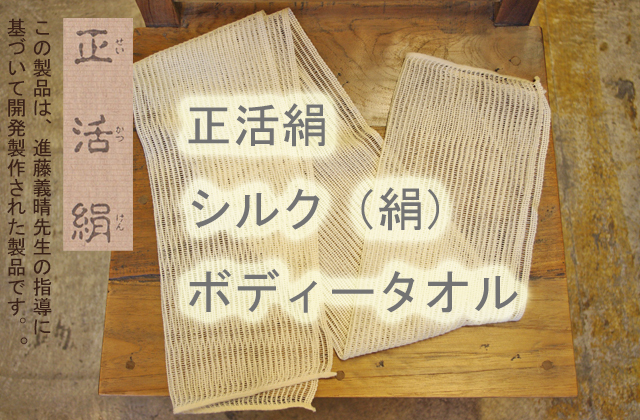 この製品は、進藤義晴先生の指導に
基づいて開発製作された製品です。。
正活絹
せいかつけん
正活絹
シルク（絹）
ボディータオル